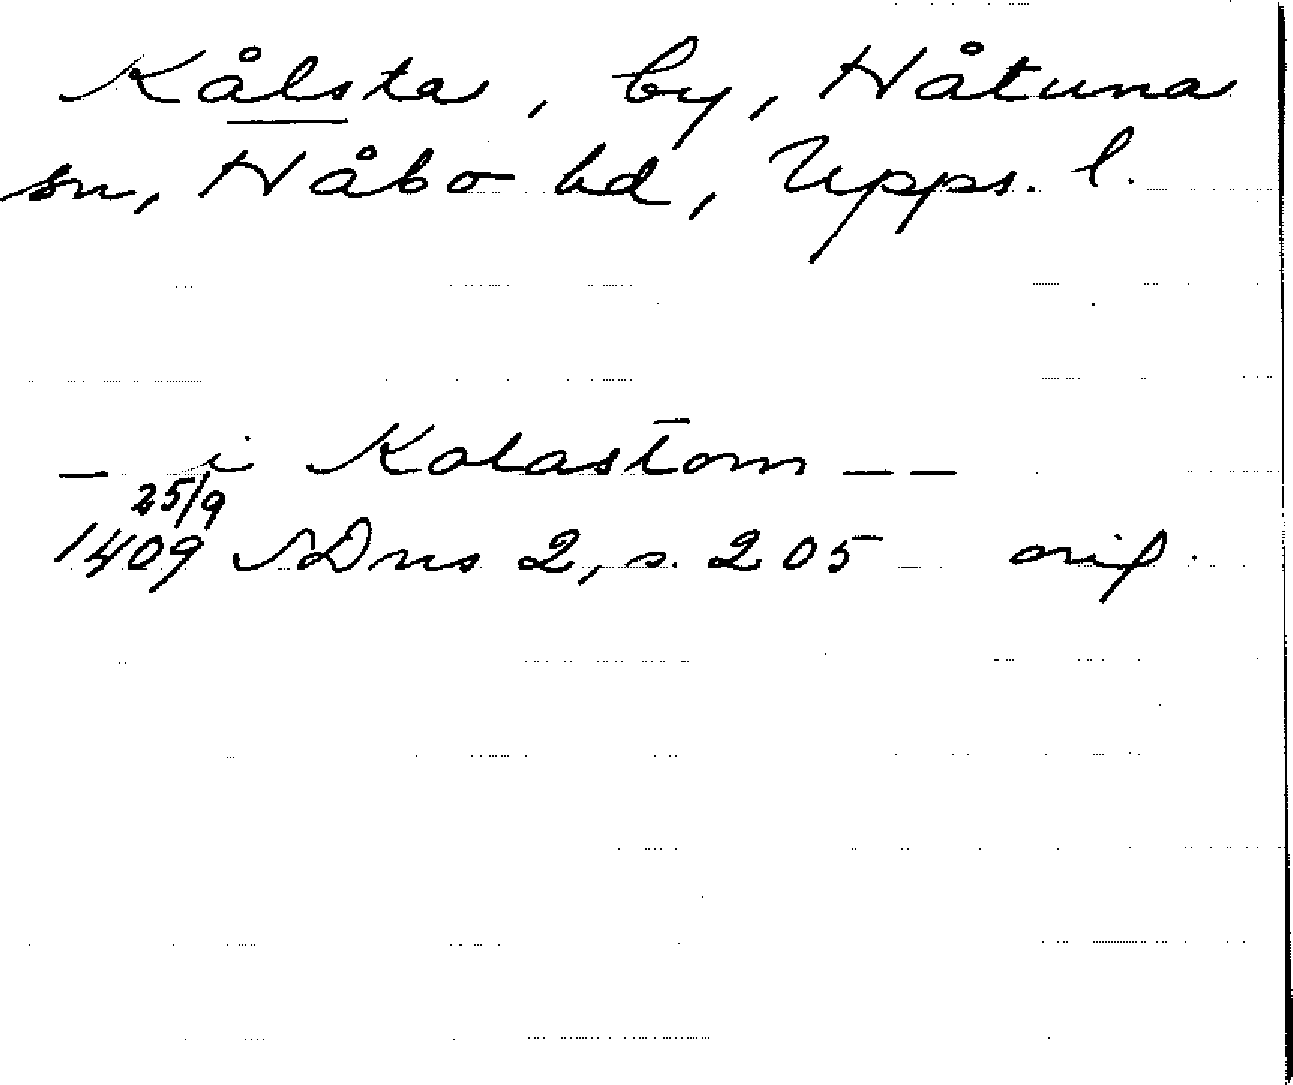 Kålsta, by, Håtuna
sn, Håbo hd, Upps. l.
– i Kolastom – –
25/9
1409 SDns 2, s. 205 orig.